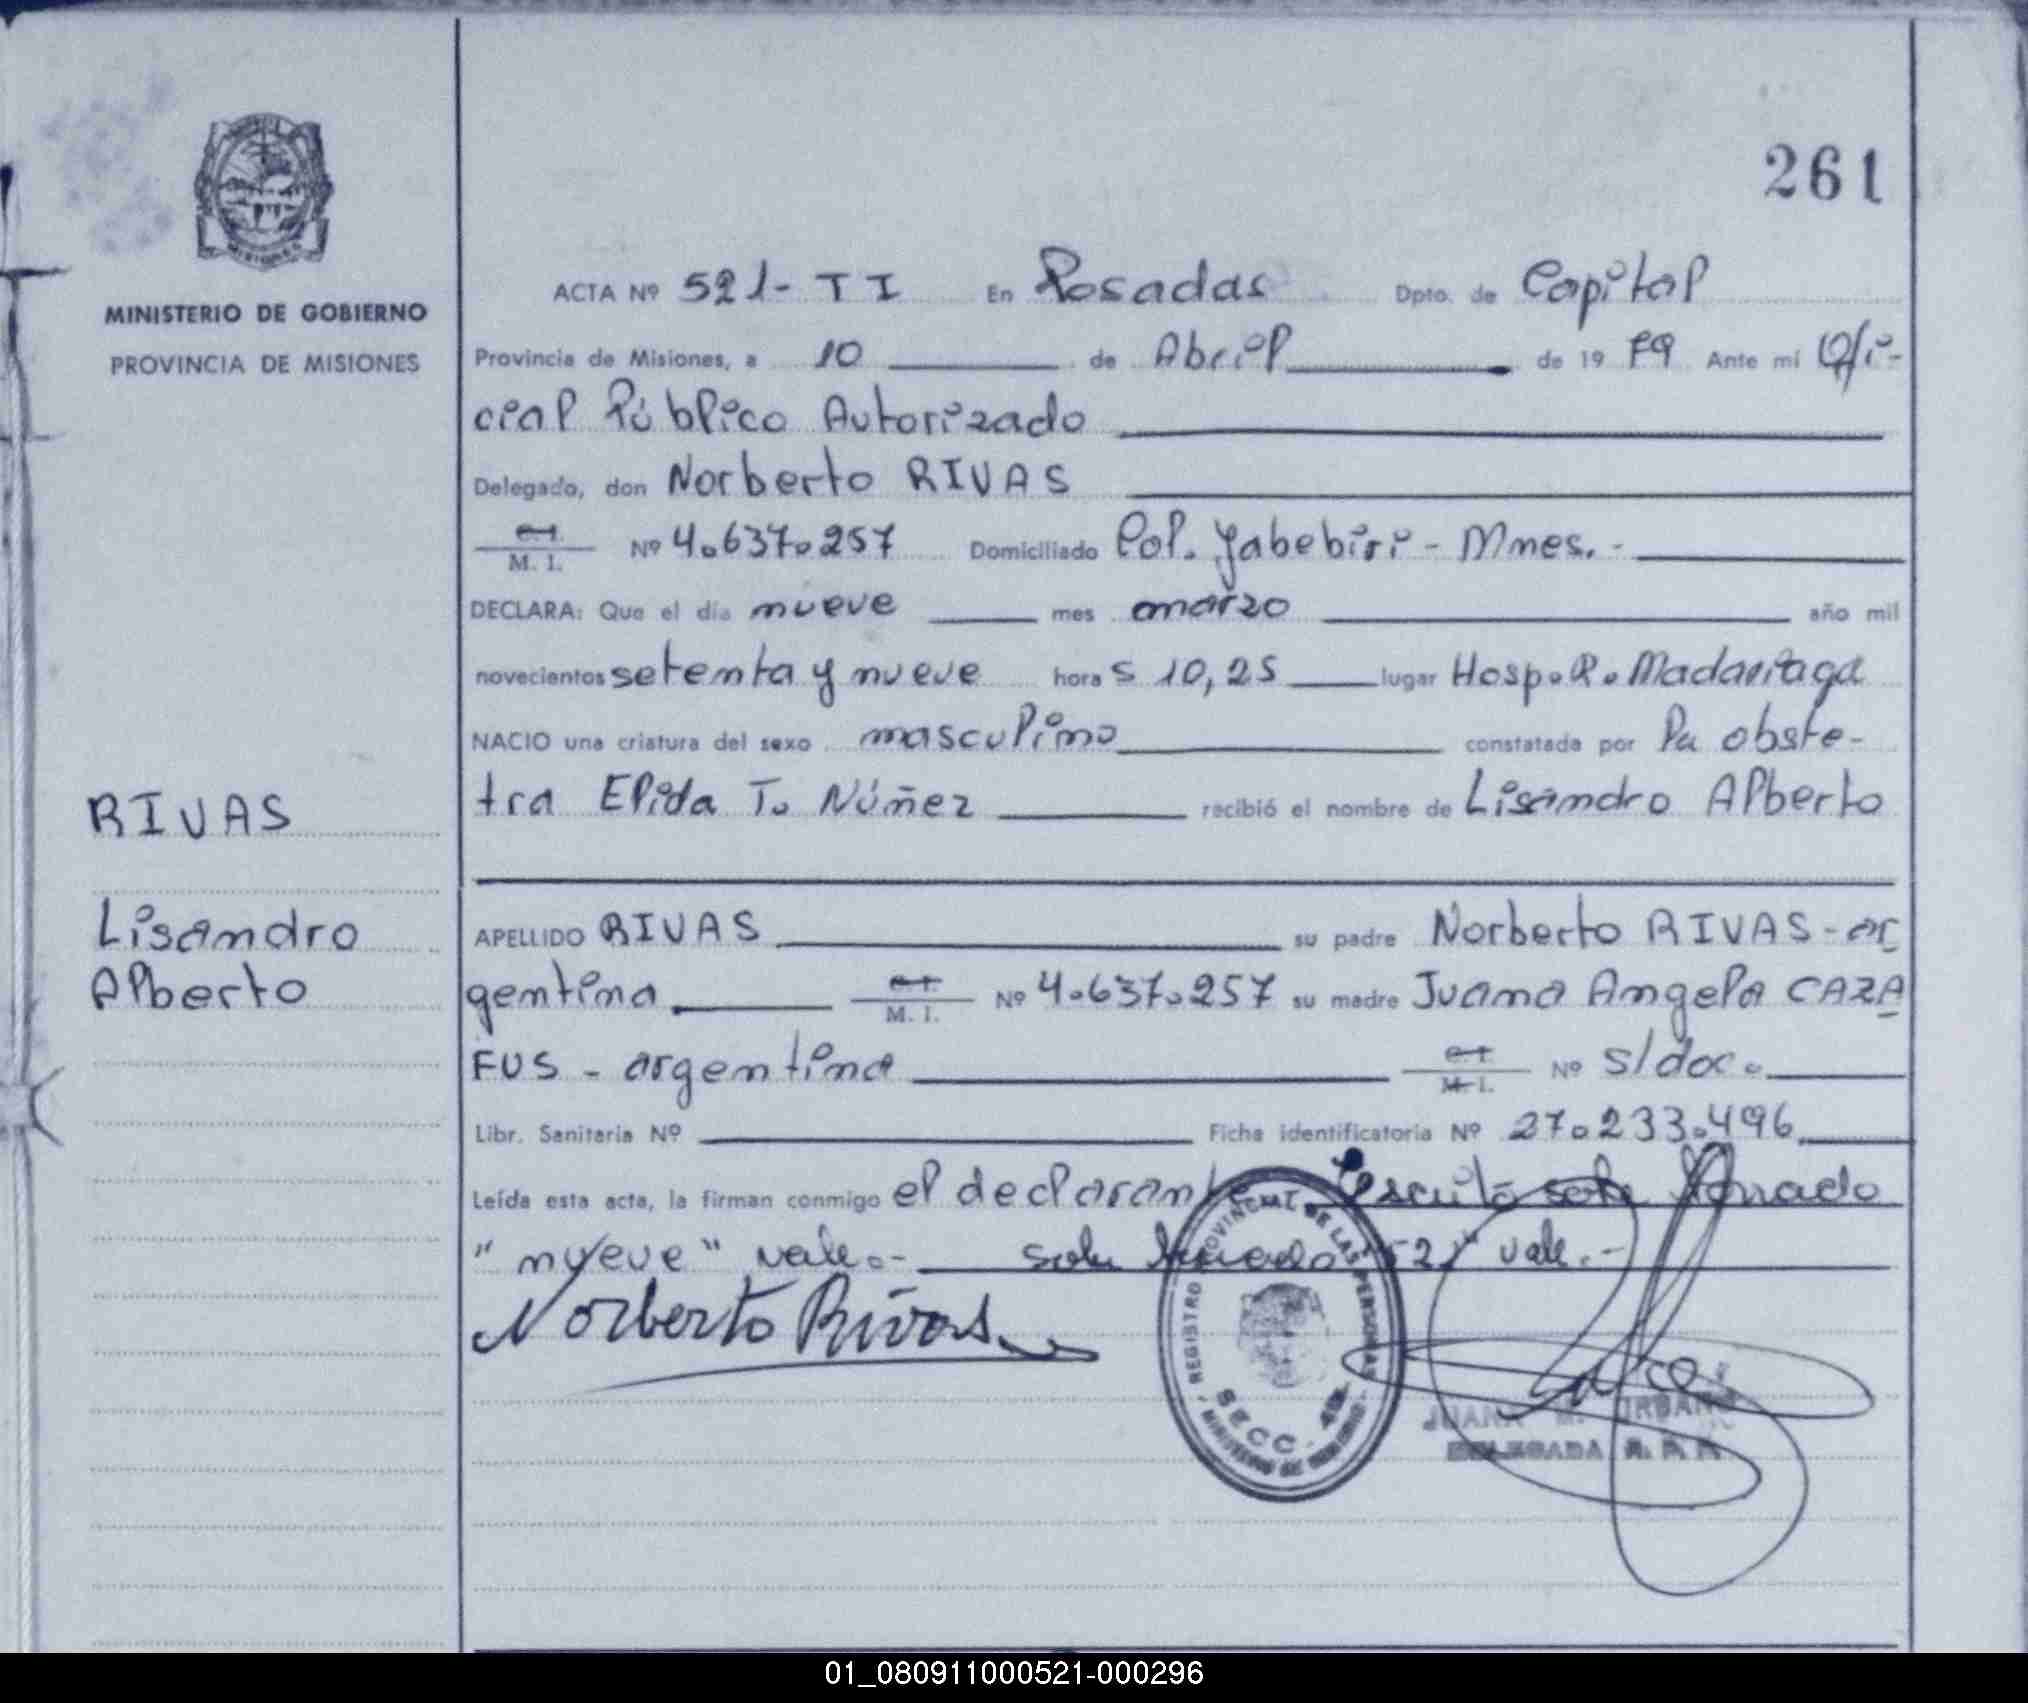 261
MINISTERIO DE GOBIERNO
PROVINCIA DE MISIONES
ACTA Nº 521- TI En Posadas Dpto. de Capital
Provincia de Misiones, a 10 de Abril de 19 79 Ante mí Ofi-
cial Público Autorizado
Delegado, don Norberto RIVAS
C.I.
M. I. Nº 4.637.257 Domiciliado Col. Yabebiri - Mnes.-
DECLARA: Que el día nueve mes marzo año mil
novecientos setenta y nueve hora s 10,25 lugar Hosp. R. Madariaga
NACIO una criatura del sexo masculino constatada por la obste-
tra Elida T. Núñez recibió el nombre de Lisandro Alberto
RIVAS
Lisandro
Alberto
APELLIDO RIVAS su padre Norberto RIVAS - ar
gentina C.I. M. I. Nº 4.637.257 su madre Juana Angela CAZA
FUS - argentina C.I. M.I. Nº s/doc.
Libr. Sanitaria Nº Ficha identificatoria Nº 27.233.496
Leída esta acta, la firman conmigo el declarante
"nueve" vale.- 521" vale.-
Norberto Rivas
REGISTRO PROVINCIAL DE LAS PERSONAS
SECC.
MINISTERIO DE GOBIERNO
JUANA M.
DELEGADA
01_080911000521-000296